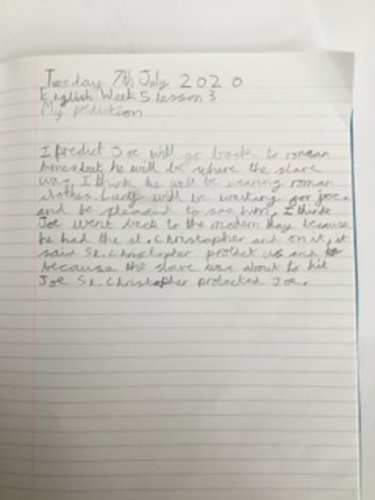 Tuesday 7th July 2020
English Week 5 lesson 3
My prediction
I predict Joe will go back to roman
times but he will be where the slave
was. I think he will be wearing roman
clothes. Lucy will be waiting for joe.
and be pleased to see him. I think
Joe went back to the modern day because
he had the st. Christopher and on it, it
said St. Christopher protect us and
because the slave was about to hit
Joe St. Christopher protected Joe.